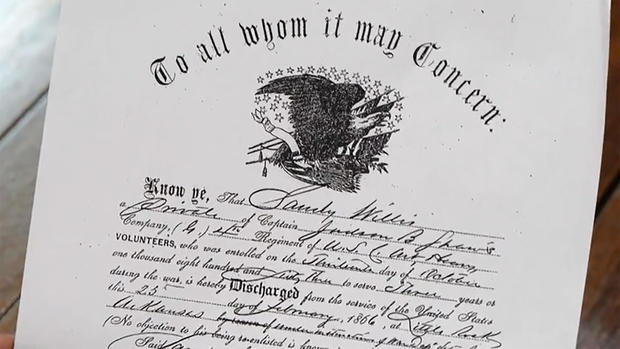 To all whom it may Concern:
Know ye, That Sandy Willis
a Private of Captain Judson B.
Company, (G,) 4th Regiment of U.S. C.
VOLUNTEERS, who was enrolled on the Thirteenth day of October
one thousand eight hundred and Sixty Three to serve Three years or
during the war, is hereby Discharged from the service of the United States
this 25 day of February, 1866, at Little Rock
Arkansas by
(No objection to his being re-enlisted is known
Said